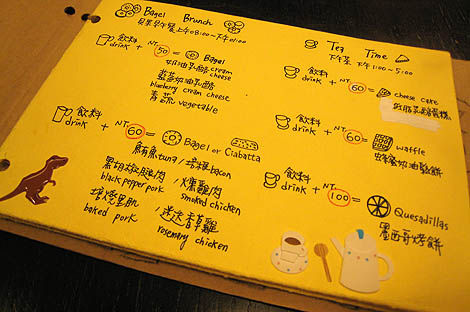 Bagel Brunch
貝果早午餐 上午08:00~下午01:00
飲料
drink + NT. 50 = Bagel
奶油乳酪 cream cheese
藍莓奶油乳酪
blueberry cream cheese
青蔬 vegetable
飲料
drink + NT. 60 = Bagel or Ciabatta
鮪魚 tuna / 培根 bacon
黑胡椒豬肉
black pepper pork
/ 燻雞肉
smoked chicken
baked pork
/ 迷迭香雞
rosemary chicken
Tea Time
下午茶 下午1:00~5:00
飲料
drink + NT. 60 = cheese cake
飲料
drink + NT. 60 = Waffle
奶油鬆餅
飲料
drink + NT. 100 = Quesadillas
墨西哥烤餅